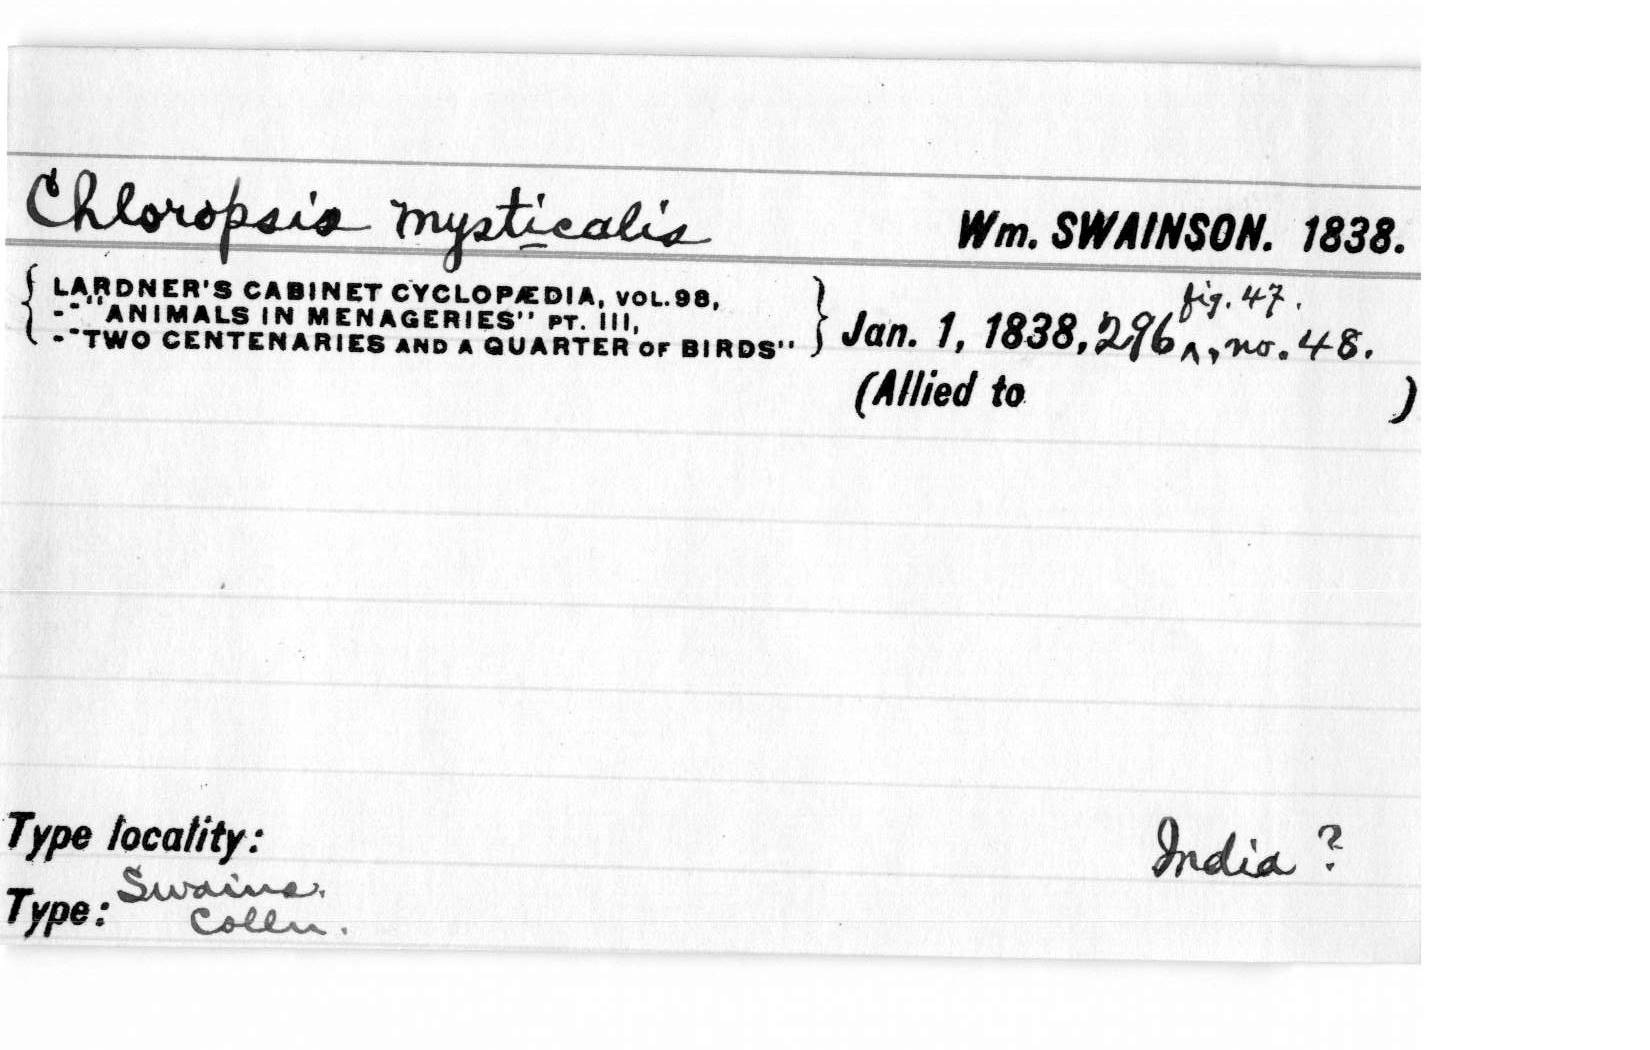 Chloropsis mysticalis Wm. SWAINSON. 1838.
{ LARDNER'S CABINET CYCLOPÆDIA, VOL. 98,
-"ANIMALS IN MENAGERIES" PT. III,
-"TWO CENTENARIES AND A QUARTER OF BIRDS" } Jan. 1, 1838, 296 ^ fig. 47. , no. 48.
(Allied to )
Type locality: India ?
Type: Swains.
Colln.